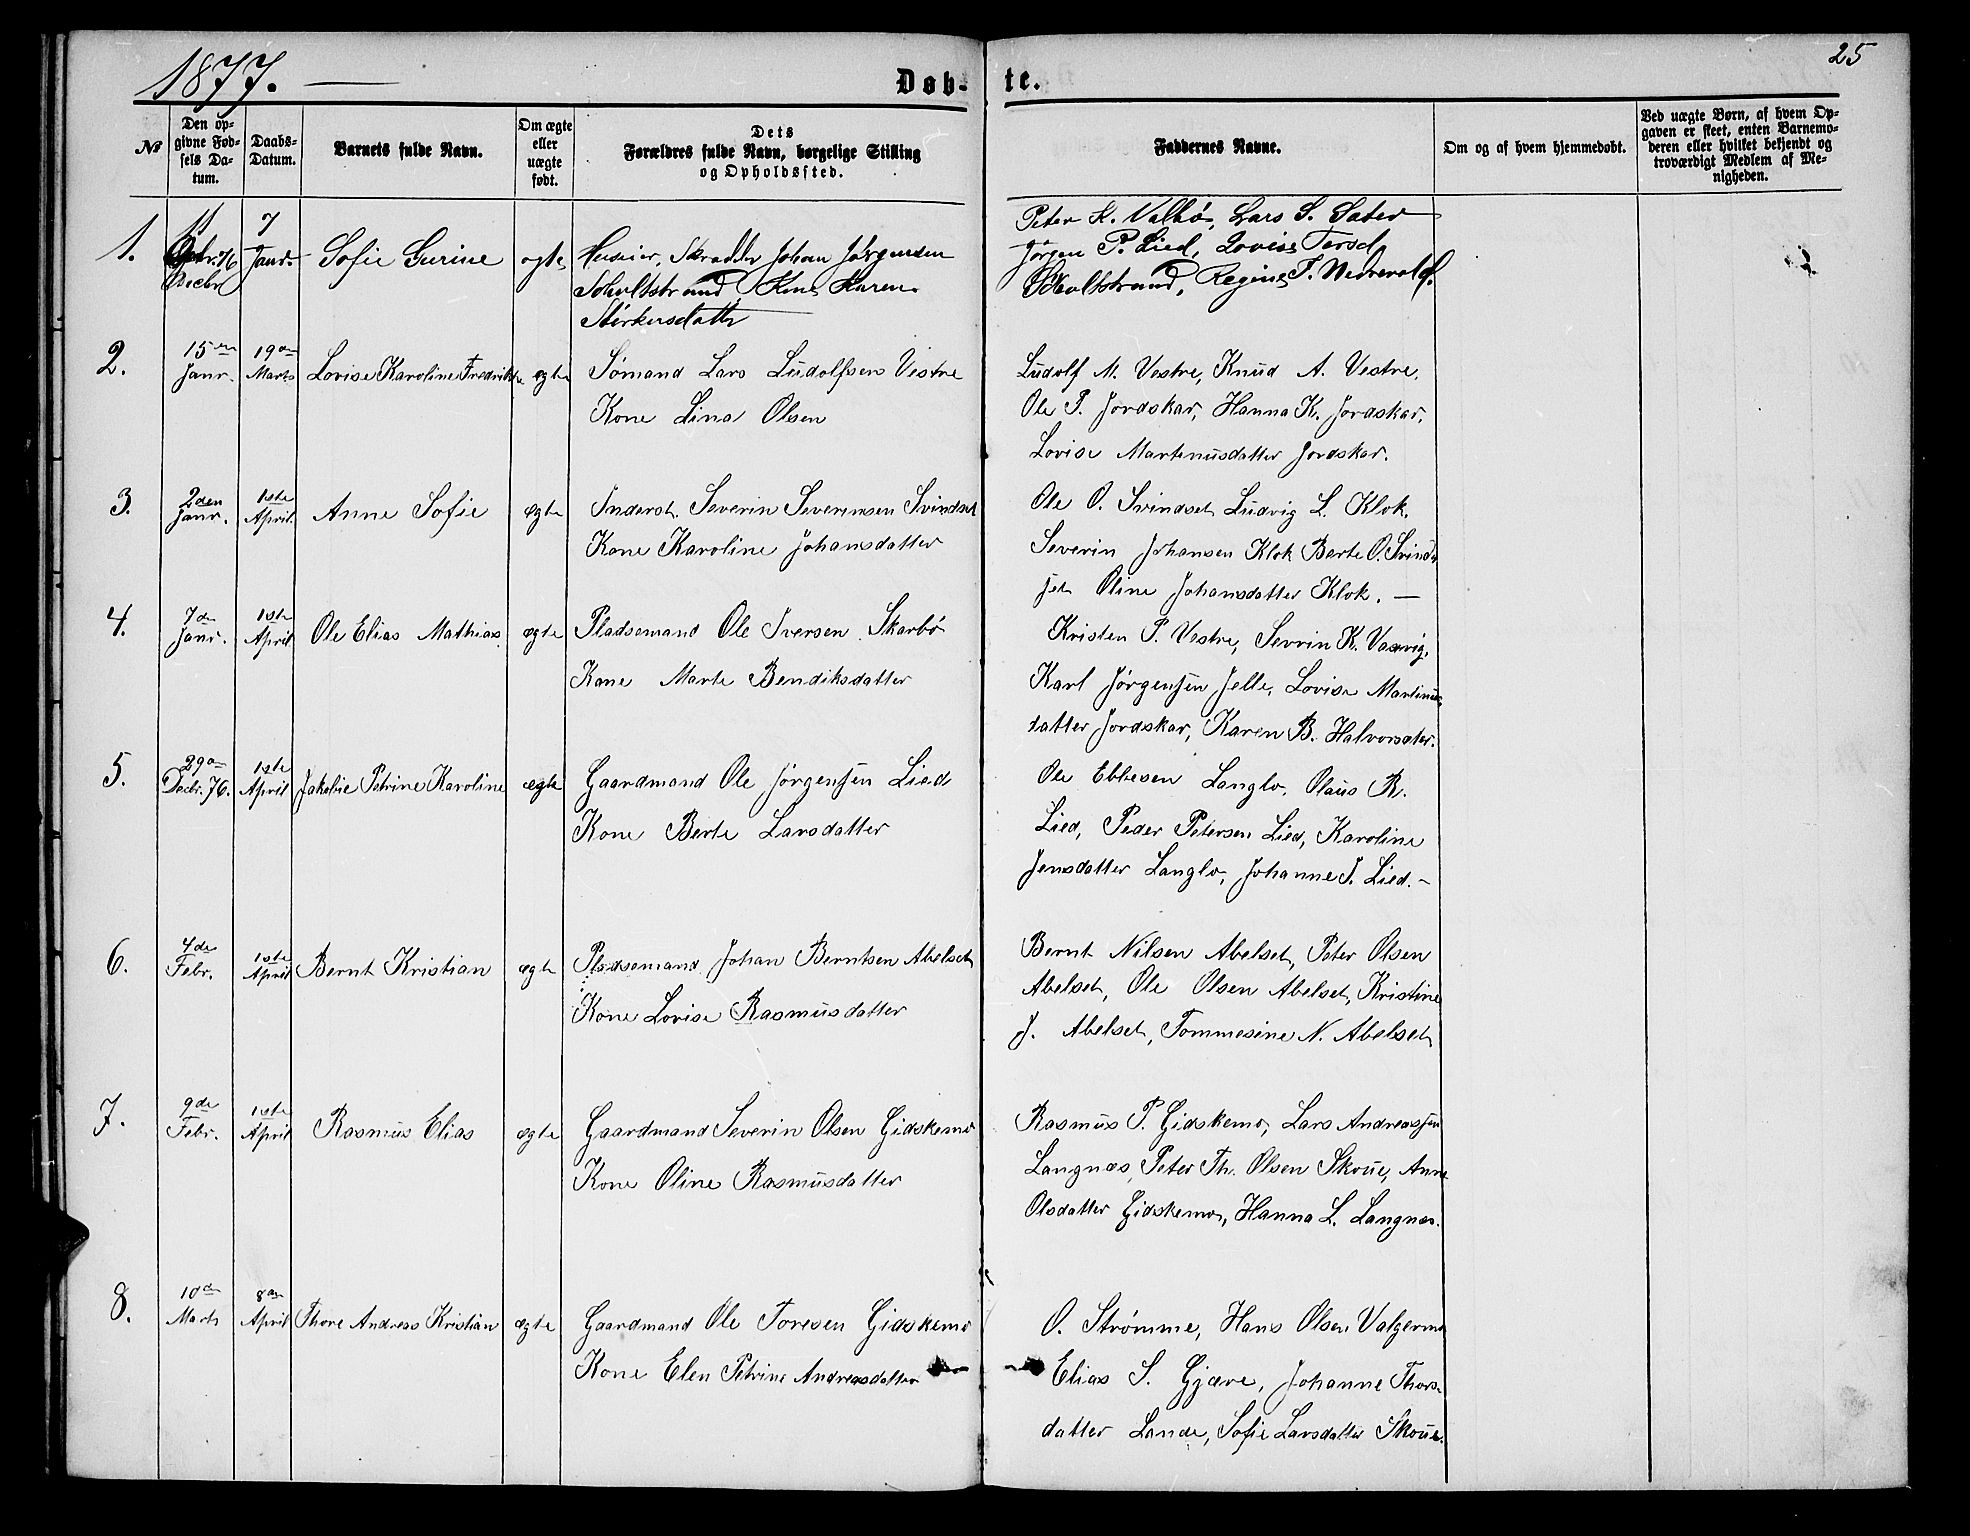 1877.
25
Døb-
te.
№
Den op-
givne Fød-
sels Da-
tum.
Daabs-
Datum.
Barnets fulde Navn.
Om ægte
eller
uægte
født.
Dets
Forældres fulde Navn, borgelige Stilling
og Opholdssted.
Faddernes Navne.
Om og af hvem hjemmedøbt.
Ved uægte Børn, af hvem Op-
gaven er skeet, enten Barnemo-
deren eller hvilket bekjendt og
troværdigt Medlem af Me-
nigheden.
1.
11
Decbr 76
7
Janr.
Sofie Gurine
ægte
Huseier, Skrædder Johan Jørgensen
Scholtstrand Kone Karen
Stærkersdatter
Peter K. Valbø, Lars S. Sæter
Jørgen P. Lied, Lovise Torsd
Scholtstrand, Regine T. Nedrevold.
2.
15en
Janr.
19de
Marts
Lovise Karoline Fredrikke
ægte
Sømand Lars Ludolfsen Vestre
Kone Lina Olsen
Ludolf M. Vestre, Knud A. Vestre,
Ole P. Jordskar, Hanna K. Jordskar,
Lovise Martinusdatter Jordskar.
3.
2den
Janr.
1ste
April.
Anne Sofie
ægte
Inderst. Severin Severinsen Svindset
Kone Karoline Johansdatter
Ole O. Svindset, Ludvig L. Klok,
Severin Johansen Klok Berte O. Svind-
set Oline Johansdatter Klok. —
4.
7de
Janr.
1ste
April
Ole Elias Mathias
ægte
Pladsemand Ole Iversen Skarbø
Kone Marte Bendiksdatter
Kristen P. Vestre, Sevrin K. Vasvig,
Karl Jørgensen Jelle, Lovise Martinus-
datter Jordskar, Karen B. Halvorsæter.
5.
29de
Decbr. 76.
1ste
April
Jakobie Petrine Karoline
ægte
Gaardmand Ole Jørgensen Lied
Kone Berte Larsdatter
Ole Ebbesen Langlo, Olaus R.
Lied, Peder Petersen Lied, Karoline
Jensdatter Langlo, Johanne J. Lied. —
6.
4de
Febr.
1ste
April
Bernt Kristian
ægte
Pladsemand Johan Berntsen Abelset
Kone Lovise Rasmusdatter
Bernt Nilsen Abelset, Peter Olsen
Abelset, Ole Olsen Abelset, Kristine
J. Abelset, Tommesine N. Abelset
7.
9de
Febr.
1ste
April
Rasmus Elias
ægte
Gaardmand Severin Olsen Gidskemo
Kone Oline Rasmusdatter
Rasmus P. Gidskemo, Lars Andreassen
Langnæs, Peter Th. Olsen Skoue, Anne
Olsdatter Gidskemo, Hanna L. Langnæs.
8.
10de
Marts
8de
April
Thore Andreas Kristian
ægte
Gaardmand Ole Toresen Gidskemo
Kone Elen Petrine Andreasdatter
O. Strømme, Hans Olsen Valgermo
Elias S. Gjære, Johanne Thors-
datter Lande, Sofie Larsdatter Skoue.